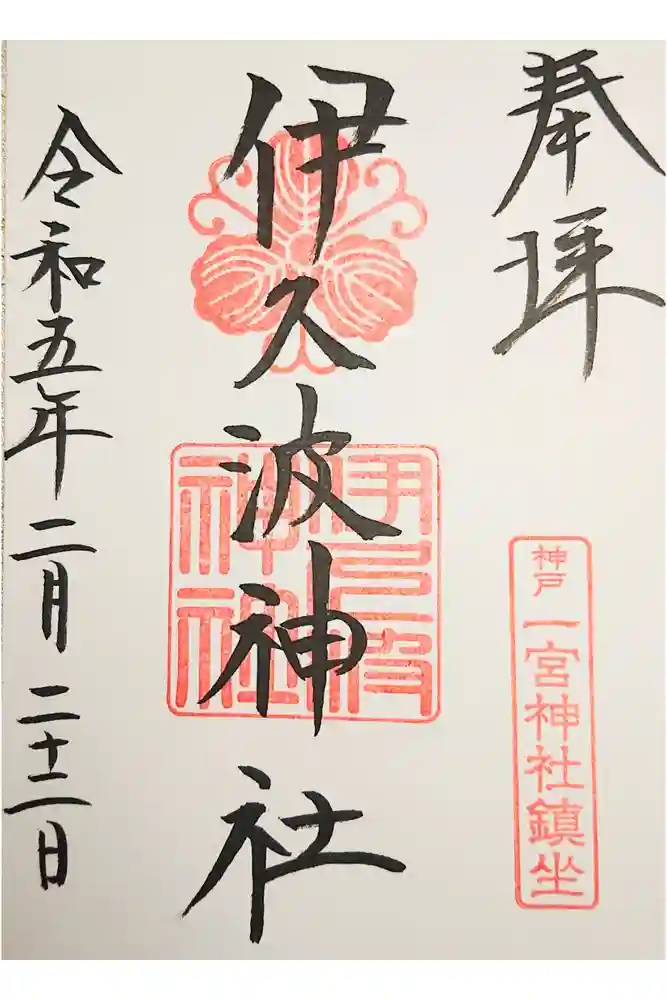 奉拝
神戸 一宮神社鎮坐
伊久波神社
伊久波神社
令和五年二月二十二日